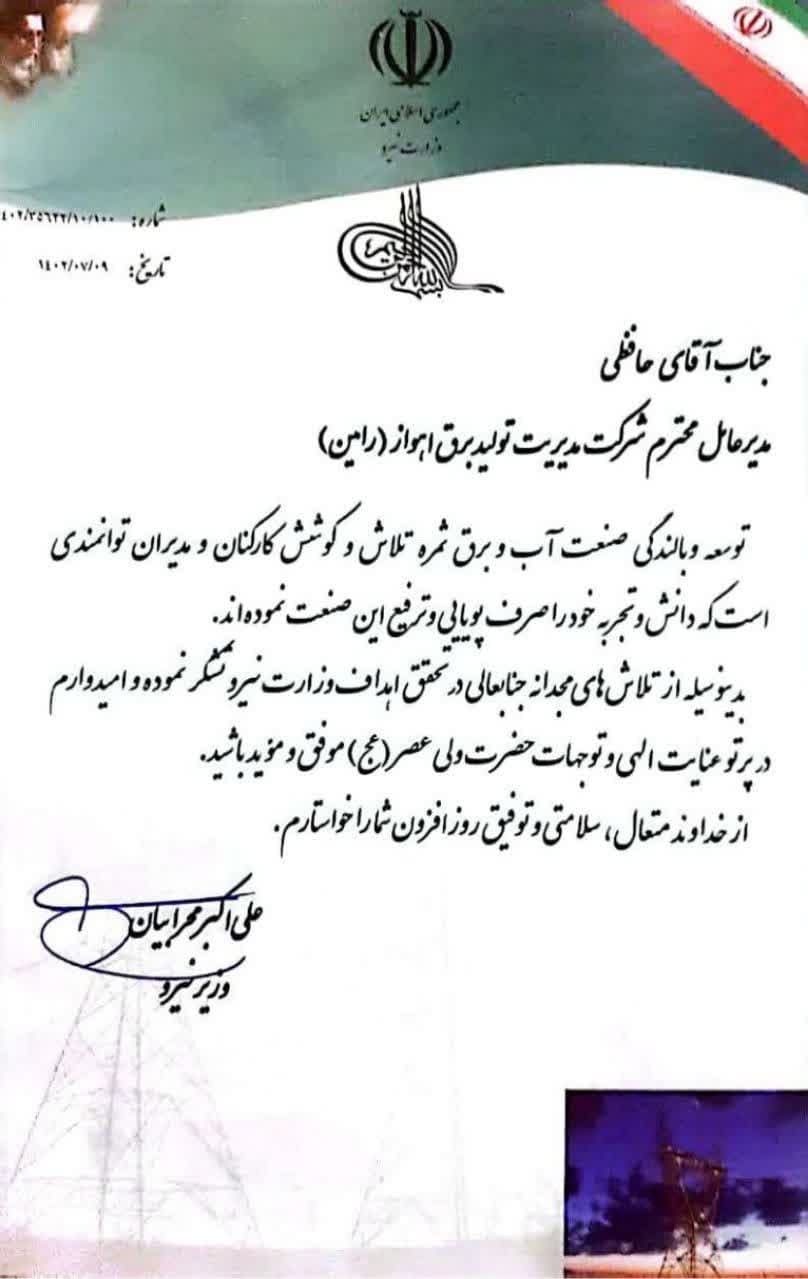 جمهوری اسلامی ایران
وزارت نیرو
شماره: ۱۴۰۲/۳۵۶۳۲/۱۰/۱۰۰
تاریخ: ۱۴۰۲/۰۷/۰۹
بسم الله الرحمن الرحیم
جناب آقای حافظی
مدیرعامل محترم شرکت مدیریت تولید برق اهواز (رامین)
توسعه و بالندگی صنعت آب و برق ثمره تلاش و کوشش کارکنان و مدیران توانمندی
است که دانش و تجربه خود را صرف پویایی و ترفیع این صنعت نموده‌اند.
بدینوسیله از تلاش‌های مجدانه جنابعالی در تحقق اهداف وزارت نیرو تشکر نموده و امیدوارم
در پرتو عنایت الهی و توجهات حضرت ولی عصر (عج) موفق و مؤید باشید.
از خداوند متعال، سلامتی و توفیق روزافزون شما را خواستارم.
علی اکبر محرابیان
وزیر نیرو